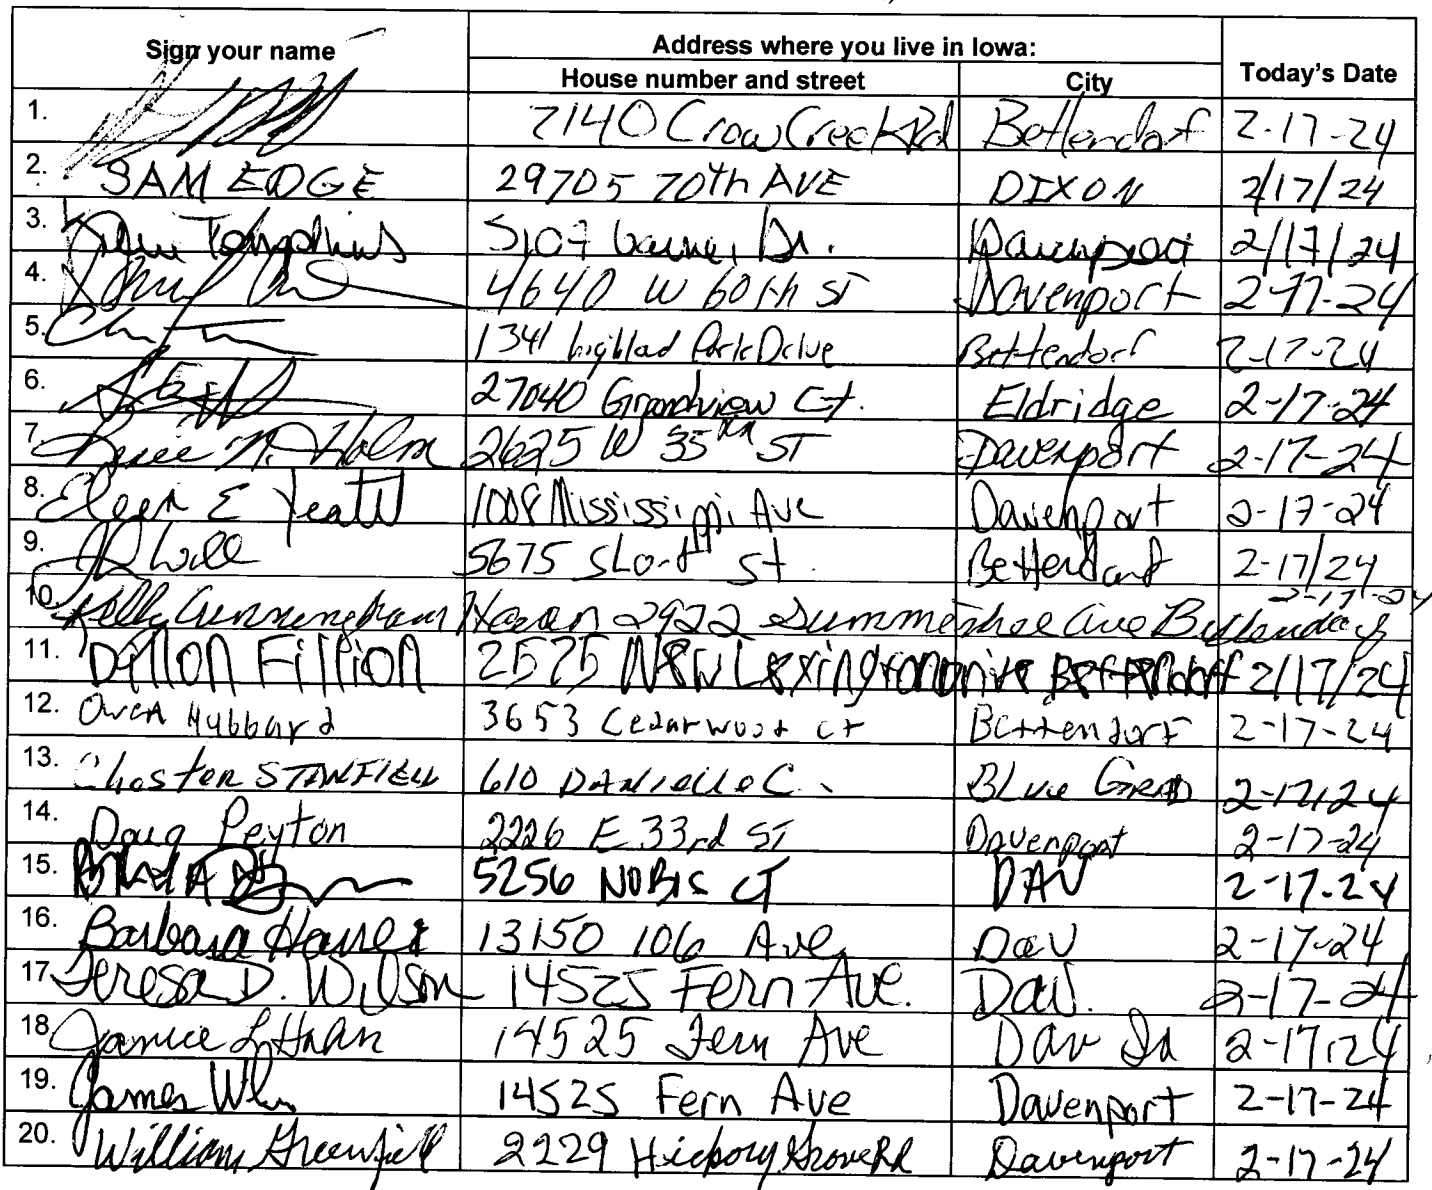 Sign your name
Address where you live in Iowa:
House number and street
City
Today's Date
1. 7140 Crow Creek Rd Bettendorf 2-17-24
2. SAM EDGE 29705 70th AVE DIXON 2/17/24
3. 5107 Dr. Davenport 2/17/24
4. 4640 W 60th ST Davenport 2-17-24
5. 1341 highlad Park Drive Bettendorf 2-17-24
6. 27040 Grandview Ct. Eldridge 2-17-24
7. N. Holm 2625 W 35th ST Davenport 2-17-24
8. E 1008 Mississippi Ave Davenport 2-17-24
9. 5675 St Bettendorf 2-17/24
10. Kelly Cunningham Haran 2922 Summertree Ave Bettendorf 2-17-24
11. Dillon Fillion 2575 New Lexington Drive Bettendorf 2/17/24
12. Owen Hubbard 3653 Cedarwood ct Bettendorf 2-17-24
13. Chester STANFIELD 610 DANielle C. BLue 2-17,24
14. Doug Peyton 2226 E 33rd ST Davenport 2-17-24
15. 5256 NOBIS CT DAV 2-17-24
16. Barbara 13150 106 Ave Dav 2-17-24
17. Teresa D. Wilson 14525 Fern Ave. Dav. 2-17-24
18. Janice L Hahn 14525 Fern Ave Dav Ia 2-17,24
19. James 14525 Fern Ave Davenport 2-17-24
20. William 2229 Hickory Grove Rd Davenport 2-17-24